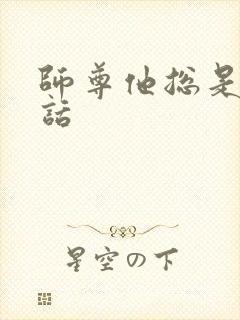 師尊他总是
話
星空の下